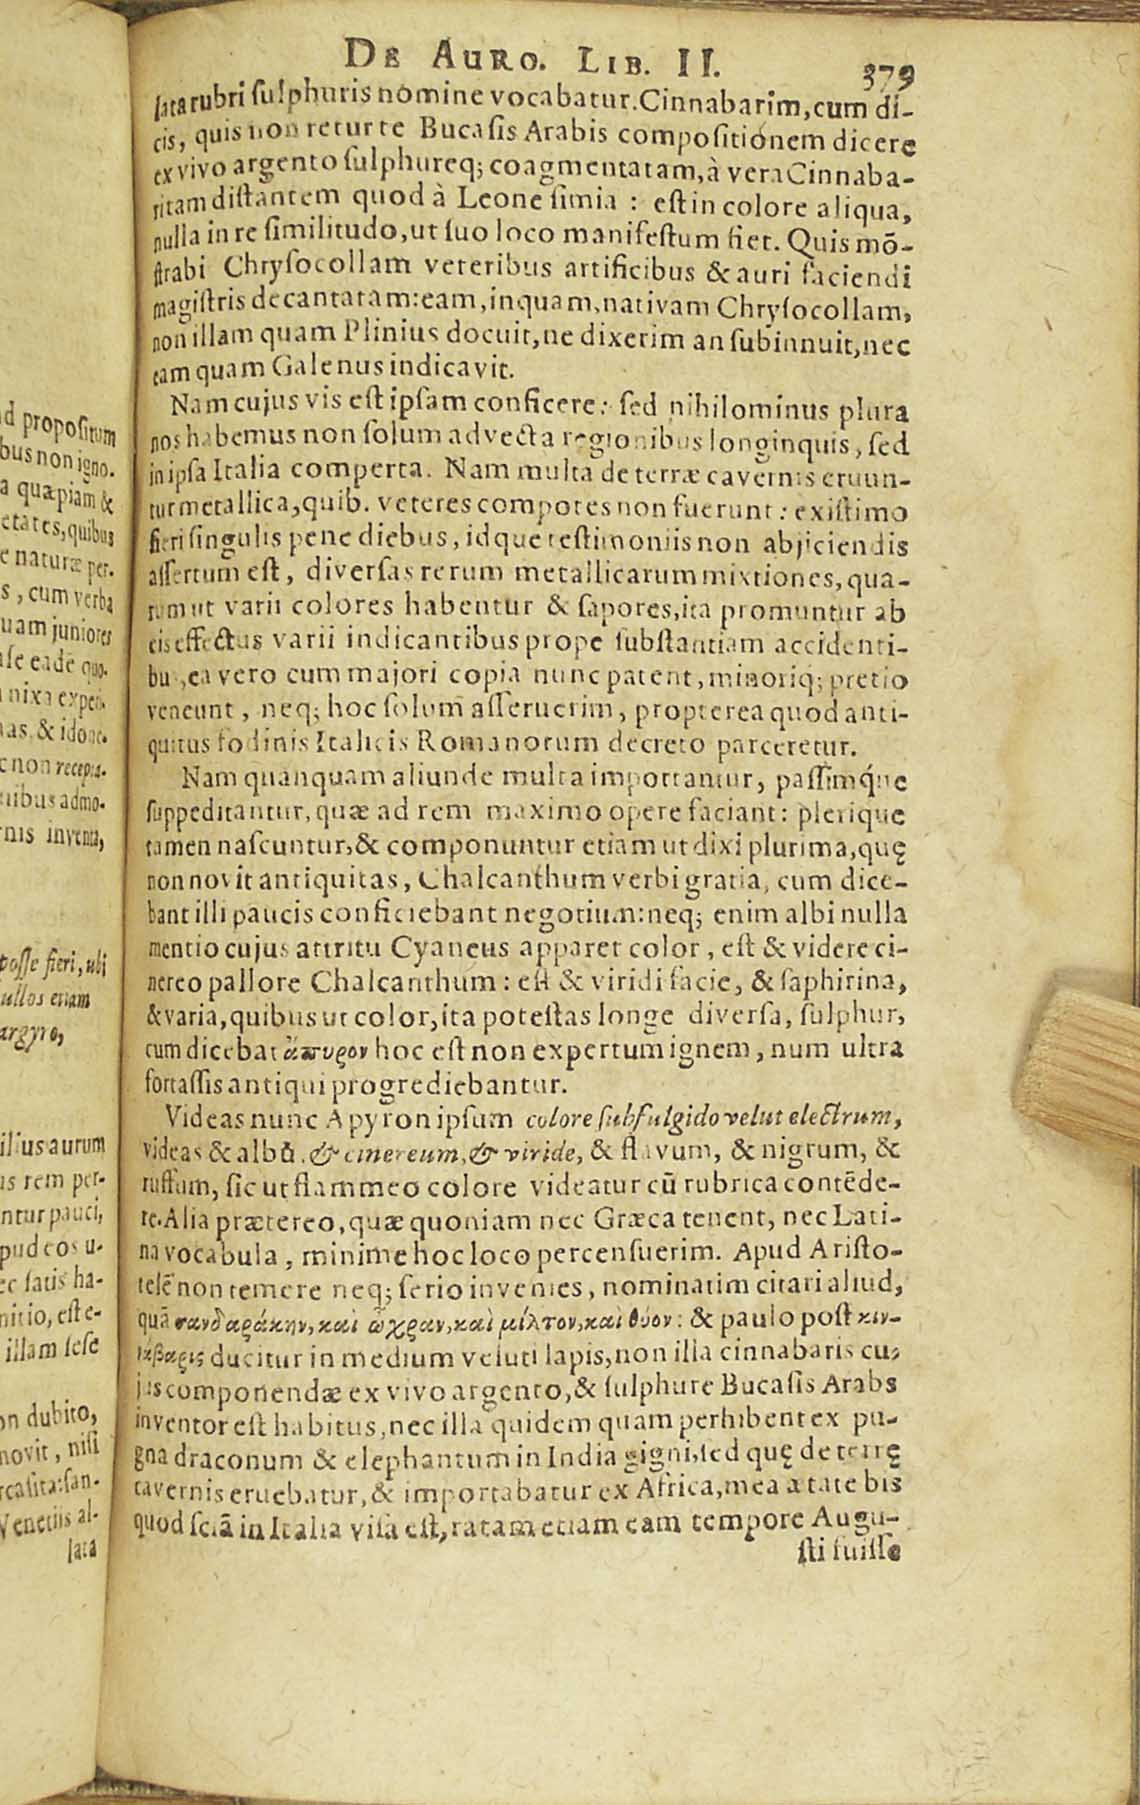 d propositum
bus non igno-
a quæpiam &
etates, quibus
e naturæ per-
s, cum verba
uam juniores
ase eadē quo-
nixa experi-
nas, & idone-
c non recepta-
nibus admo-
rnis inventa,
posse fieri, ubi
ullos etiam
argyro,
ilius aurum
us rem per-
ntur pauci,
pud eos u-
ec satis ha-
nitio, est e-
illam sese
on dubito,
novit, nisi
rcasita: san-
Venetiis al-
lata
DE AURO. LIB. II. 379
lata rubri sulphuris nomine vocabatur. Cinnabarim, cum di-
cis, quis non retur te Bucasis Arabis compositiónem dicere
ex vivo argento sulphureq; coagmentatam, à vera Cinnaba-
ritam distantem quod à Leone simia : est in colore aliqua,
nulla in re similitudo, ut suo loco manifestum fiet. Quis mō-
strabi Chrysocollam veteribus artificibus & auri faciendi
magistris decantatam: eam, inquam, nativam Chrysocollam,
non illam quam Plinius docuit, ne dixerim an subinnuit, nec
eam quam Galenus indicavit.
Nam cujus vis est ipsam conficere: sed nihilominus plura
nos habemus non solum advecta regionibus longinquis, sed
in ipsa Italia comperta. Nam multa de terræ cavernis eruun-
tur metallica, quib. veteres compotes non fuerunt : existimo
fieri singulis pene diebus, idque testimoniis non abjiciendis
assertum est, diversas rerum metallicarum mixtiones, qua-
rum ut varii colores habentur & sapores, ita promuntur ab
eis effectus varii indicantibus prope substantiam accidenti-
bus, ea vero cum majori copia nunc patent, minoriq; pretio
veneunt, neq; hoc solum asseruerim, propterea quod anti-
quitus fodinis Italicis Romanorum decreto parceretur.
Nam quanquam aliunde multa importantur, passimq́ue
suppeditantur, quæ ad rem maximo opere faciant: plerique
tamen nascuntur, & componuntur etiam ut dixi plurima, quę
non novit antiquitas, Chalcanthum verbi gratia, cum dice-
bant illi paucis conficiebant negotium: neq; enim albi nulla
mentio cujus attritu Cyaneus apparet color, est & videre ci-
nereo pallore Chalcanthum : est & viridi facie, & saphirina,
& varia, quibus ut color, ita potestas longe diversa, sulphur,
cum dicebat ἄπυρον hoc est non expertum ignem, num ultra
fortassis antiqui progrediebantur.
Videas nunc Apyron ipsum colore subfulgido velut electrum,
videas & albū. & cinereum, & viride, & flavum, & nigrum, &
ruffum, sic ut flammeo colore videatur cū rubrica contēde-
re. Alia prætereo, quæ quoniam nec Græca tenent, nec Lati-
na vocabula, minime hoc loco percensuerim. Apud Aristo-
telē non temere neq; serio invenies, nominatim citari aliud,
quā σανδαράκην, καὶ ὦχραν, καὶ μίλτον, καὶ θύον: & paulo post κιν-
ναβαρις ducitur in medium veluti lapis, non illa cinnabaris cu-
jus componendæ ex vivo argento, & sulphure Bucasis Arabs
inventor est habitus, nec illa quidem quam perhibent ex pu-
gna draconum & elephantum in India gigni, sed quę de terrę
cavernis eruebatur, & importabatur ex Africa, mea ætate bis
quod sciā in Italia visa est, ratam etiam eam tempore Augu-
sti fuisse